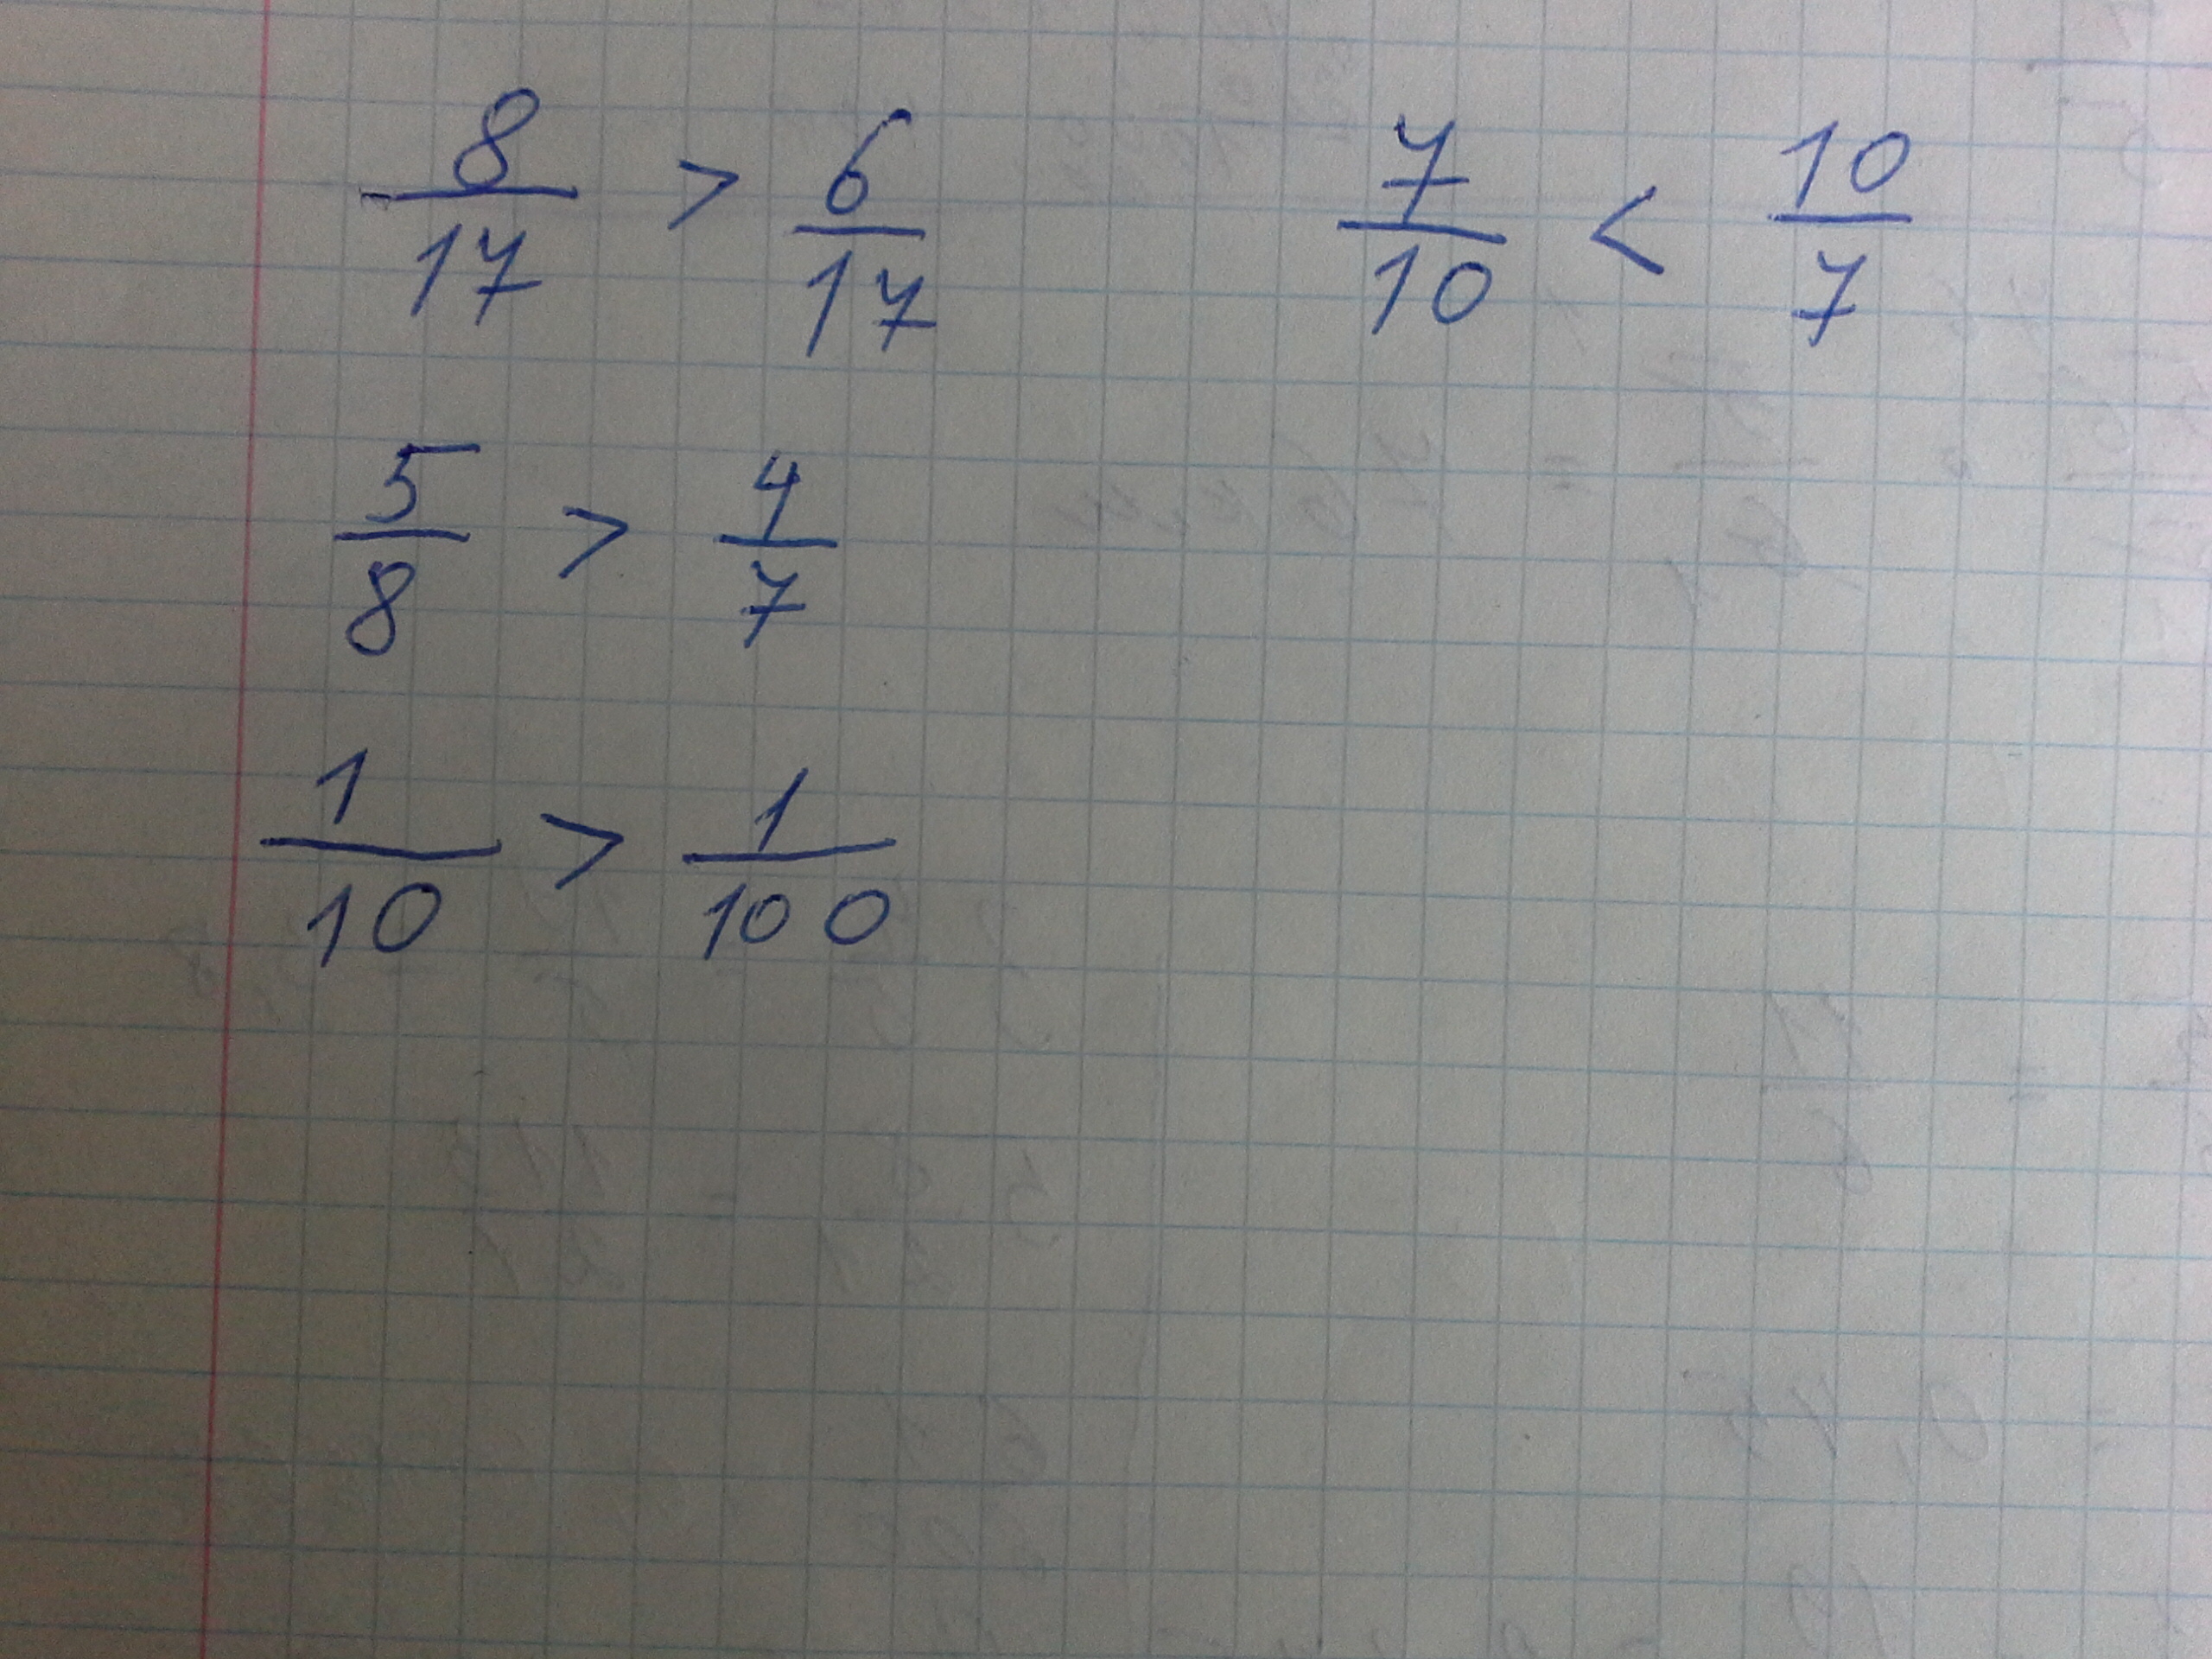 8/17 > 6/17 7/10 < 10/7
5/8 > 4/7
1/10 > 1/100